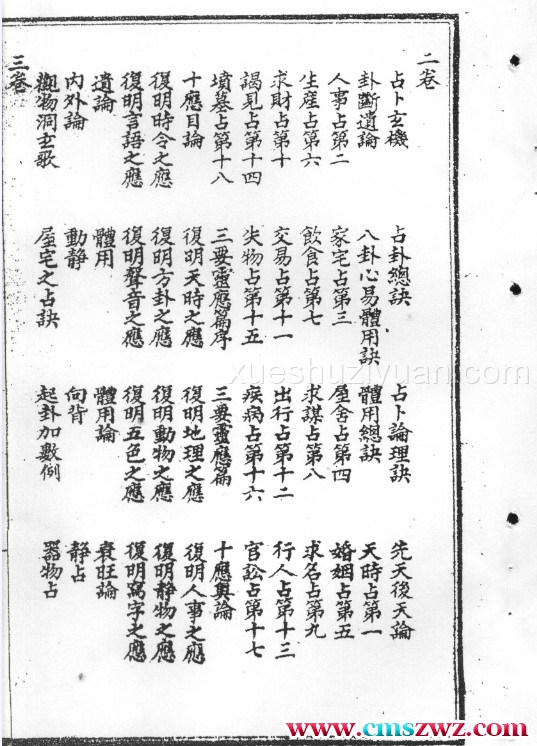 二卷
占卜玄機 占卦總訣 占卜論理訣 先天後天論
卦斷遺論 八卦心易體用訣 體用總訣 天時占第一
人事占第二 家宅占第三 屋舍占第四 婚姻占第五
生産占第六 飲食占第七 求謀占第八 求名占第九
求財占第十 交易占第十一 出行占第十二 行人占第十三
謁見占第十四 失物占第十五 疾病占第十六 官訟占第十七
墳墓占第十八 三要靈應篇序 三要靈應篇 十應奥論
十應目論 復明天時之應 復明地理之應 復明人事之應
復明時令之應 復明方卦之應 復明動物之應 復明静物之應
復明言語之應 復明聲音之應 復明五色之應 復明寫字之應
遺論 體用 體用論 衰旺論
内外論 動静 向背 静占
觀物洞玄歌 屋宅之占訣 起卦加數例 器物占
三卷
xueshuziyuan.com
www.cmszwz.com